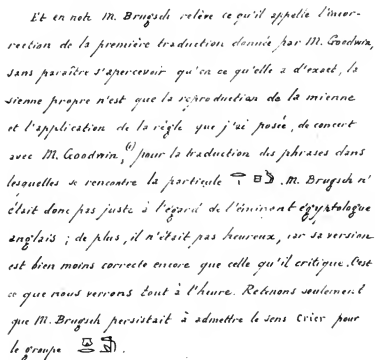 Et en note M. Brugsch relève ce qu'il appelle l'incor-
rection de la première traduction donnée par M. Goodwin,
sans paraître s'apercevoir qu'en ce qu'elle a d'exact, la
sienne propre n'est que la reproduction de la mienne
et l'application de la règle que j'ai posée, de concert
avec M. Goodwin, (1) pour la traduction des phrases dans
lesquelles se rencontre la particule . M. Brugsch n'
était donc pas juste à l'égard de l'éminent égyptologue
anglais ; de plus, il n'était pas heureux, car sa version
est bien moins correcte encore que celle qu'il critique. C'est
ce que nous verrons tout à l'heure. Retenons seulement
que M. Brugsch persistait à admettre le sens crier pour
le groupe .